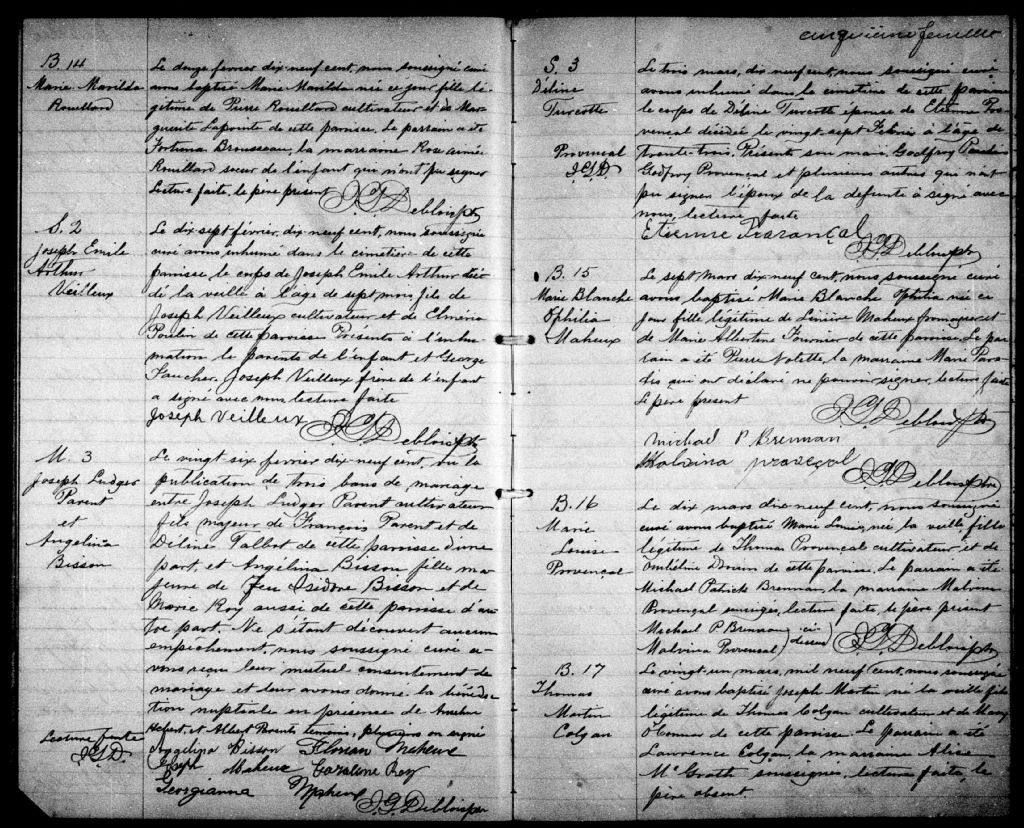 B. 14
Marie Marilda
Rouillard
Le douze fevrier dix neuf cent, nous soussigné curé
avons baptisé Marie Marilda née ce jour fille lé-
gitime de Pierre Rouillard cultivateur et de Mar-
guerite Lapointe de cette paroisse. Le parrain a été
Fortunat Brousseau, la marraine Rose-Aimée
Rouillard soeur de l'enfant qui n'ont pu signer
Lecture faite, le père present
J. G. Deblois ptr
S. 2
Joseph Emile
Arthur
Veilleux
Le dix sept février, dix neuf cent, nous soussigné
curé avons inhumé dans le cimetière de cette
paroisse le corps de Joseph Emile Arthur décé-
dé la veille à l'âge de sept mois fils de
Joseph Veilleux cultivateur et de Elméria
Poulin de cette paroisse Présents à l'inhu-
mation le parents de l'enfant et George
Faucher. Joseph Veilleux frère de l'enfant
a signé avec nous lecture faite
Joseph Veilleux
J. G. Deblois ptr
M. 3
Joseph Ludger
Parent
et
Angelina
Bisson
Le vingt-six fevrier dix-neuf cent, vu la
publication de trois bans de mariage
entre Joseph Ludger Parent cultivateur
fils majeur de François Parent et de
Déline Talbot de cette paroisse d'une
part, et Angélina Bisson fille ma-
jeure de Feu Isidore Bisson et de
Marie Roy aussi de cette paroisse d'au-
tre part. Ne s'étant découvert aucun
empêchement, nous soussigné curé a-
vons reçu leur mutuel consentement de
mariage et leur avons donné la bénédic-
tion nuptiale en présence de
et Albert Parents temoins, plusieurs on signé
Lecture faite
J.G.D.
Anggelina Bisson Florian Maheux
Joseph Maheux Caroline Roy
Georgianna Maheux
J. G. Deblois ptr
cinquième feuillet
S. 3
Déline
Turcotte
Provençal
J.G.D
Le trois mars, dix neuf cent, nous soussigné curé
avons inhumé dans le cimetière de cette paroisse
le corps de Déline Turcotte épouse de Etienne Pro-
vençal décédée le vingt-sept Février à l'âge de
trente-trois. Présents son mari, Godfroy
Godfroy Provençal et plusieurs autres qui n'ont
pu signer l'époux de la defunte a signé avec
nous, lecture faite
Etienne Prarançal
J. G. Deblois ptr
B. 15
Marie Blanche
Ophilia
Maheux
Le sept mars dix neuf cent, nous soussigné curé
avons, baptisé Marie Blanche Ophilia née ce
jour fille légitime de Linière Maheux fromager et
de Marie Albertine Fournier de cette paroisse. Le par-
rain a été Pierre Nolette, la marraine Marie Para-
dis qui ont déclaré ne pouvoir signer, lecture faite
Le père present
J. G. Deblois ptr
Michael P Brennan
Malvina provençal
J. G. Deblois ptr
B. 16
Marie
Louise
Provençal
Le dix mars dix neuf cent, nous soussigné
curé avons baptisé Marie Louise, née la veille fille
légitime de Thomas Provençal cultivateur et de
Ombéline Drouin de cette paroisse. Le parrain a été
Michael Patrick Brennan, la marraine Malvina
Provençal soussignés, lecture faite, le père présent
Michael P. Brennan
Malvina Provençal
) ci-dessus
J. G. Deblois ptr
B. 17
Thomas
Martin
Colgan
Le vingt-un mars, mil neuf cent, nous soussigné
curé avons baptisé Joseph Martin né la veille fils
légitime de Thomas Colgan cultivateur et de Mary
O'Connor de cette paroisse. Le parrain a été
Lawrence Colgan, la marraine Alice
Mc Grath soussignés, lecture faite, le
père absent.